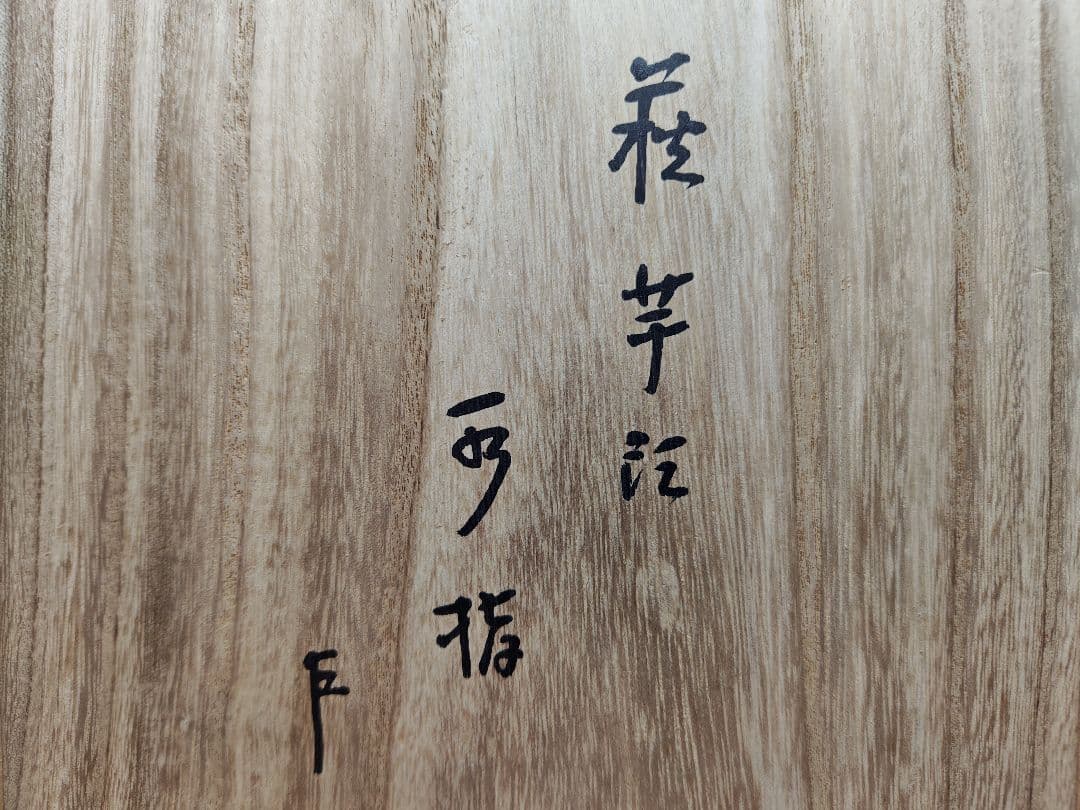 萩芋頭
水指